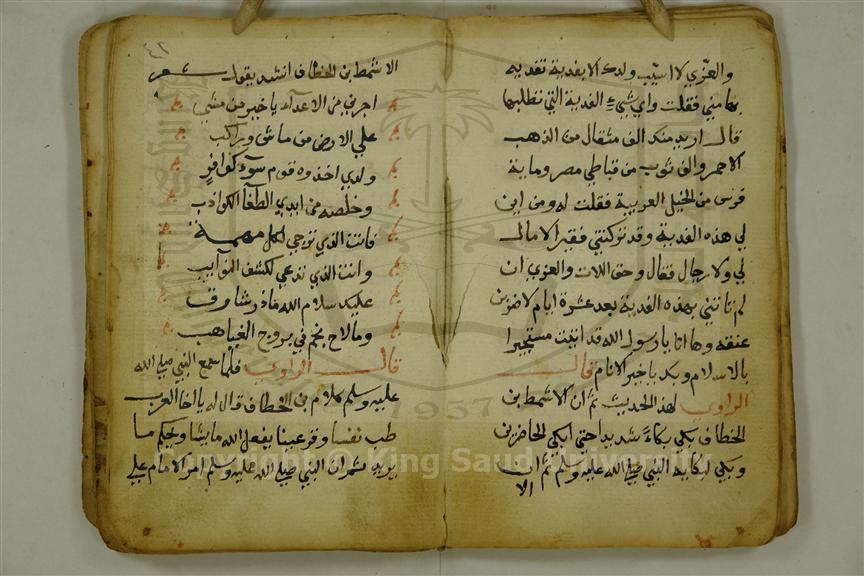 والعزّي لا اسيّب ولدك الا بفدية تفديه
بها مني فقلت واي شيء الفدية التي تطلبها
قال اريد منك الف مثقال من الذهب
الاحمر والف ثوب من قباطي مصر وماية
فرس من الخيل العربية فقلت له ومن اين
لي هذه الفدية وقد تركتني فقيرا لا مال
لي ولا رجال فقال وحق اللات والعزي ان
لم تاتني بهذه الفدية بعد عشرة ايام لاضربن
عنقه وها انا يا رسول الله قد اتيت مستجيرا
بالاسلام وبك يا خير الانام قال
الراوي لهذا الحديث ثم ان الاشمط بن
الخطاف بكي بكاءً شديدا حتي ابكي الحاضرين
وبكي لبكايه النبي صلي الله عليه وسلم ثم ان
الا
٤٢
الاشمط بن الخطاف انشد يقول شعر
اجرني من الاعداء يا خير من مشي
علي الارض من ماشي وراكب
ولدي اخذوه قوم سوء كوافرٍ
وخلصه من ايدي الطغا الكواذب
فانت الذي ترجي لكل مهمة
وانت الذي تدعي لكشف النوايب
عليك سلام الله ماذر شارق
وما لاح نجم في بروج الغياهب
قال الراوي فلما سمع النبي صلي الله
عليه وسلم كلام بن الخطاف قال له يا اخا العرب
طب نفسا وقر عينا يفعل الله ما يشا ويحكم ما
يريد ثم ان النبي صلي الله عليه وسلم امر الامام علي
Copyright © King Saud University
1957